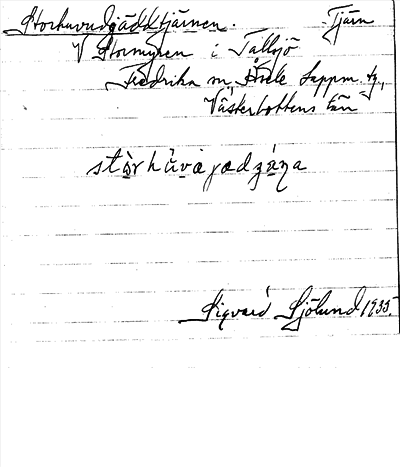 Storhuvudgäddtjärnen. Tjärn
V Stormyren i Tallsjö
Fredrika sn, Åsele Lappm. tg.,
Västerbottens län
stòrhùvagœdʒána
Sigvard Sjölund 1935.